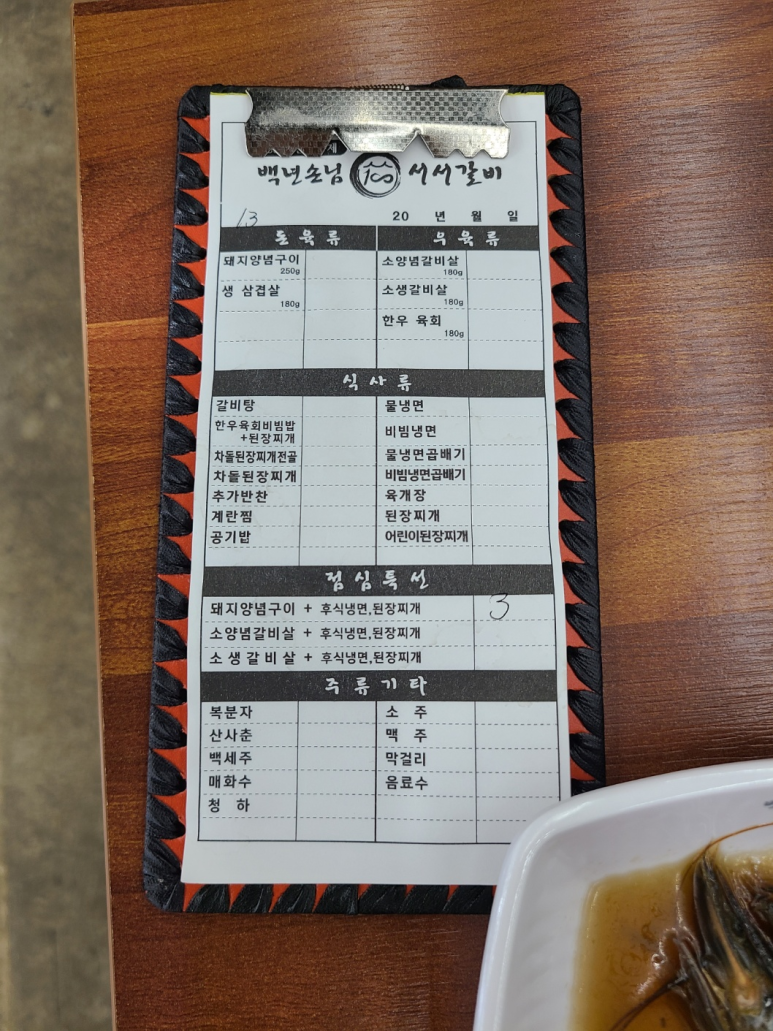 백년손님 100 서서갈비
13 20 년 월 일
돈육류 우육류
돼지양념구이 250g 소양념갈비살 180g
생 삼겹살 180g 소생갈비살 180g
한우 육회 180g
식사류
갈비탕 물냉면
한우육회비빔밥 +된장찌개 비빔냉면
차돌된장찌개전골 물냉면곱배기
차돌된장찌개 비빔냉면곱배기
추가반찬 육개장
계란찜 된장찌개
공기밥 어린이된장찌개
점심특선
돼지양념구이 + 후식냉면,된장찌개 3
소양념갈비살 + 후식냉면,된장찌개
소생갈비살 + 후식냉면,된장찌개
주류기타
복분자 소 주
산사춘 맥 주
백세주 막걸리
매화수 음료수
청 하